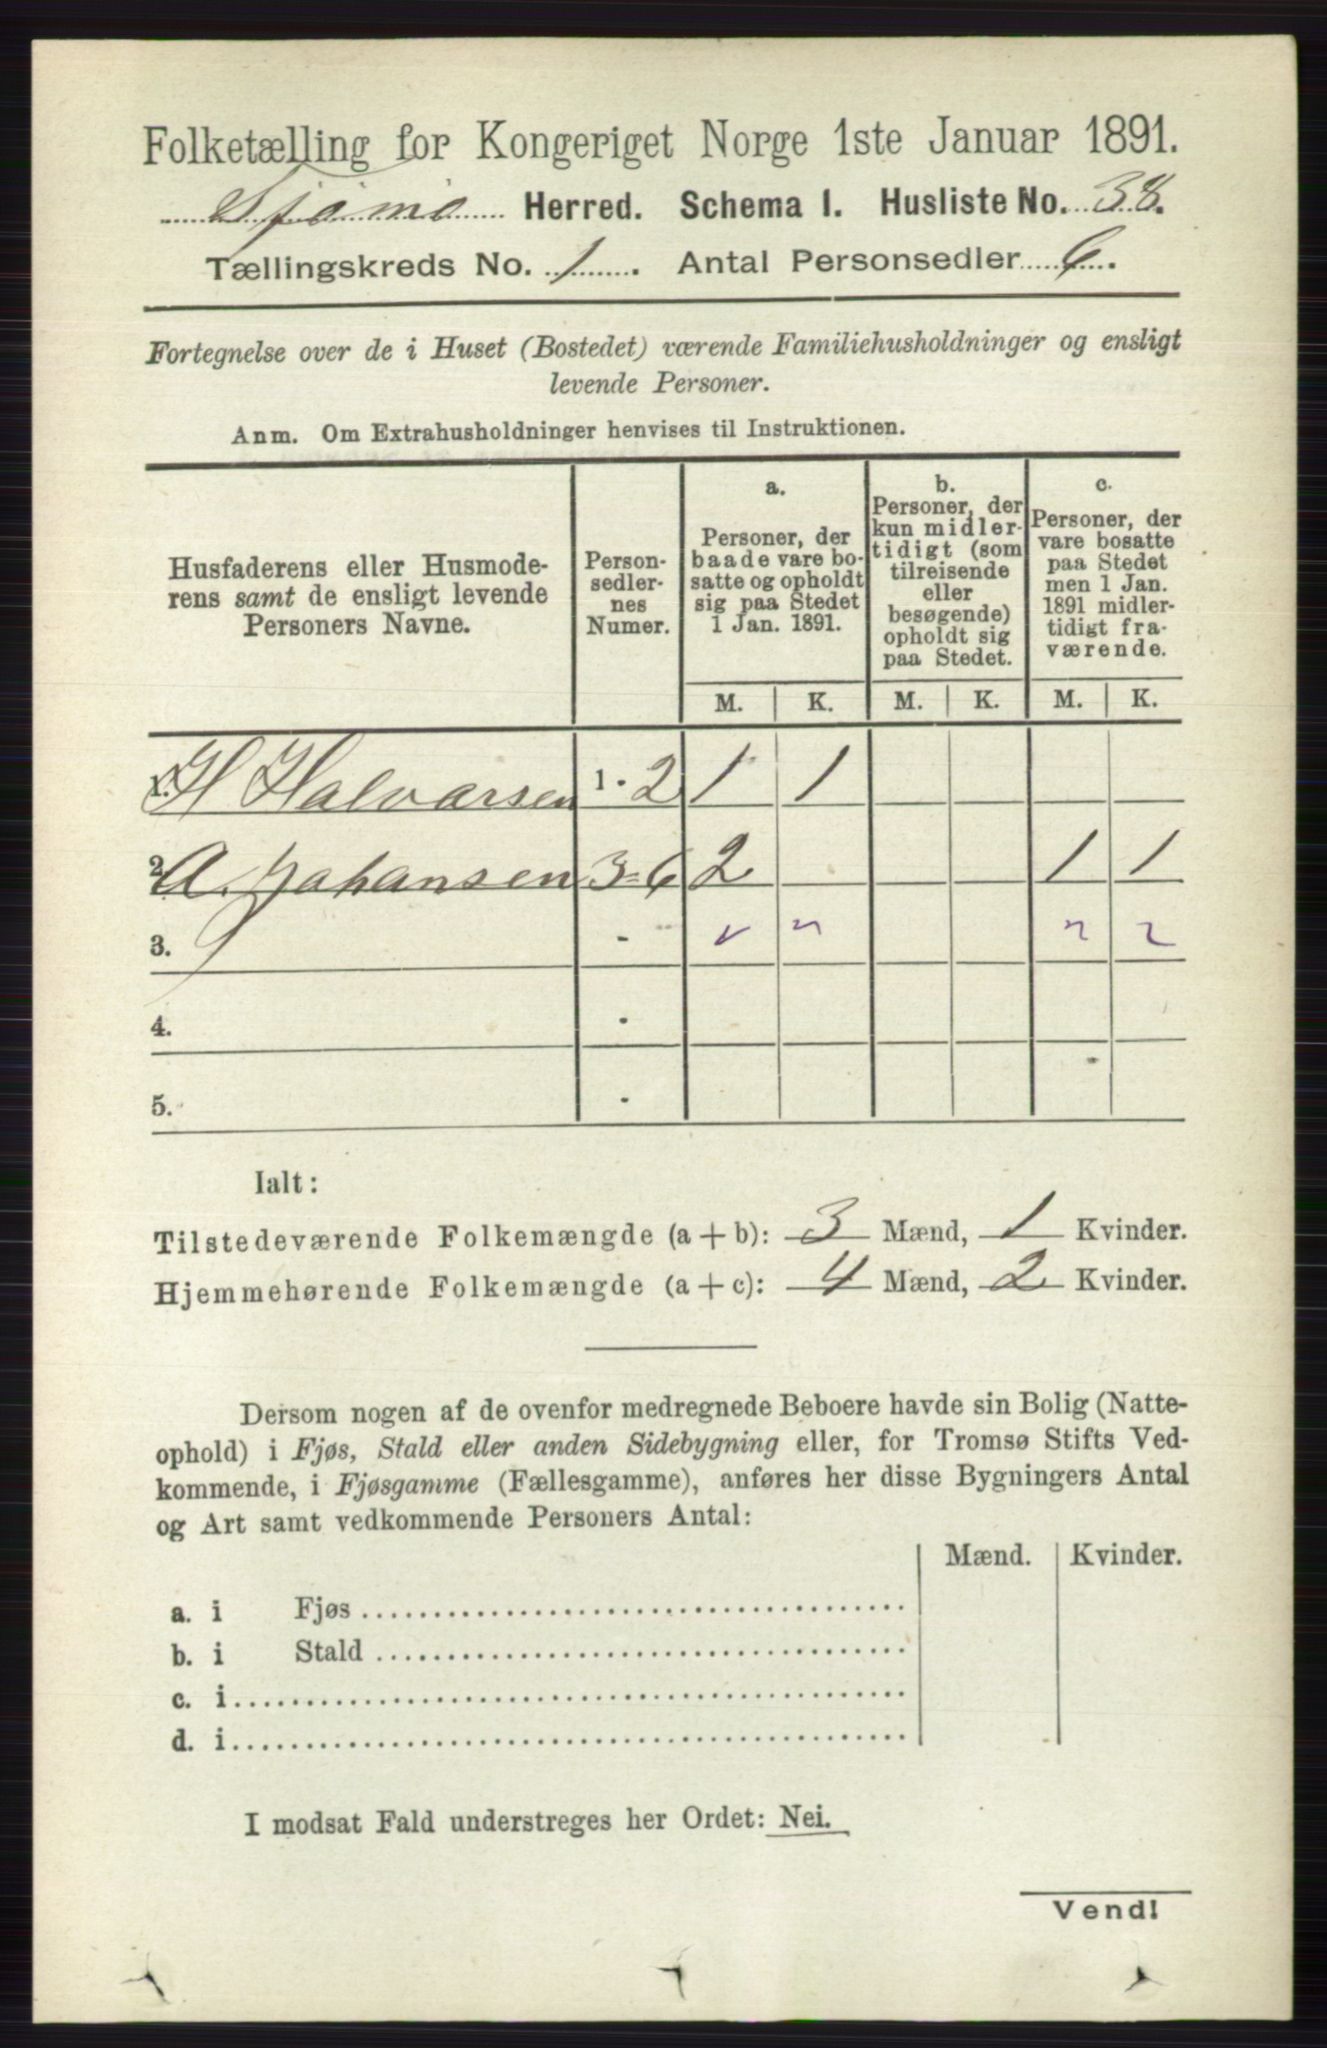 Folketælling for Kongeriget Norge 1ste Januar 1891.
Tjømø Herred. Schema I. Husliste No. 38.
Tællingskreds No. 1. Antal Personsedler 6.
Fortegnelse over de i Huset (Bostedet) værende Familiehusholdninger og ensligt
levende Personer.
Anm. Om Extrahusholdninger henvises til Instruktionen.
Husfaderens eller Husmode-
rens samt de ensligt levende
Personers Navne.
Person-
sedler-
nes
Numer.
a.
Personer, der
baade vare bo-
satte og opholdt
sig paa Stedet
1 Jan. 1891.
b.
Personer, der
kun midler-
tidigt (som
tilreisende
eller
besøgende)
opholdt sig
paa Stedet.
c.
Personer, der
vare bosatte
paa Stedet
men 1 Jan.
1891 midler-
tidigt fra-
værende.
M. K. M. K. M. K.
1. H Halvorsen 1 - 2 1 1
2. A. Johansen 3-6 2 1 1
3. -
4. -
5. -
Ialt:
Tilstedeværende Folkemængde (a + b): 3 Mænd, 1 Kvinder.
Hjemmehørende Folkemængde (a + c): 4 Mænd, 2 Kvinder.
Dersom nogen af de ovenfor medregnede Beboere havde sin Bolig (Natte-
ophold) i Fjøs, Stald eller anden Sidebygning eller, for Tromsø Stifts Ved-
kommende, i Fjøsgamme (Fællesgamme), anføres her disse Bygningers Antal
og Art samt vedkommende Personers Antal:
Mænd. Kvinder.
a. i Fjøs
b. i Stald
c. i
d. i
I modsat Fald understreges her Ordet: Nei.
Vend!